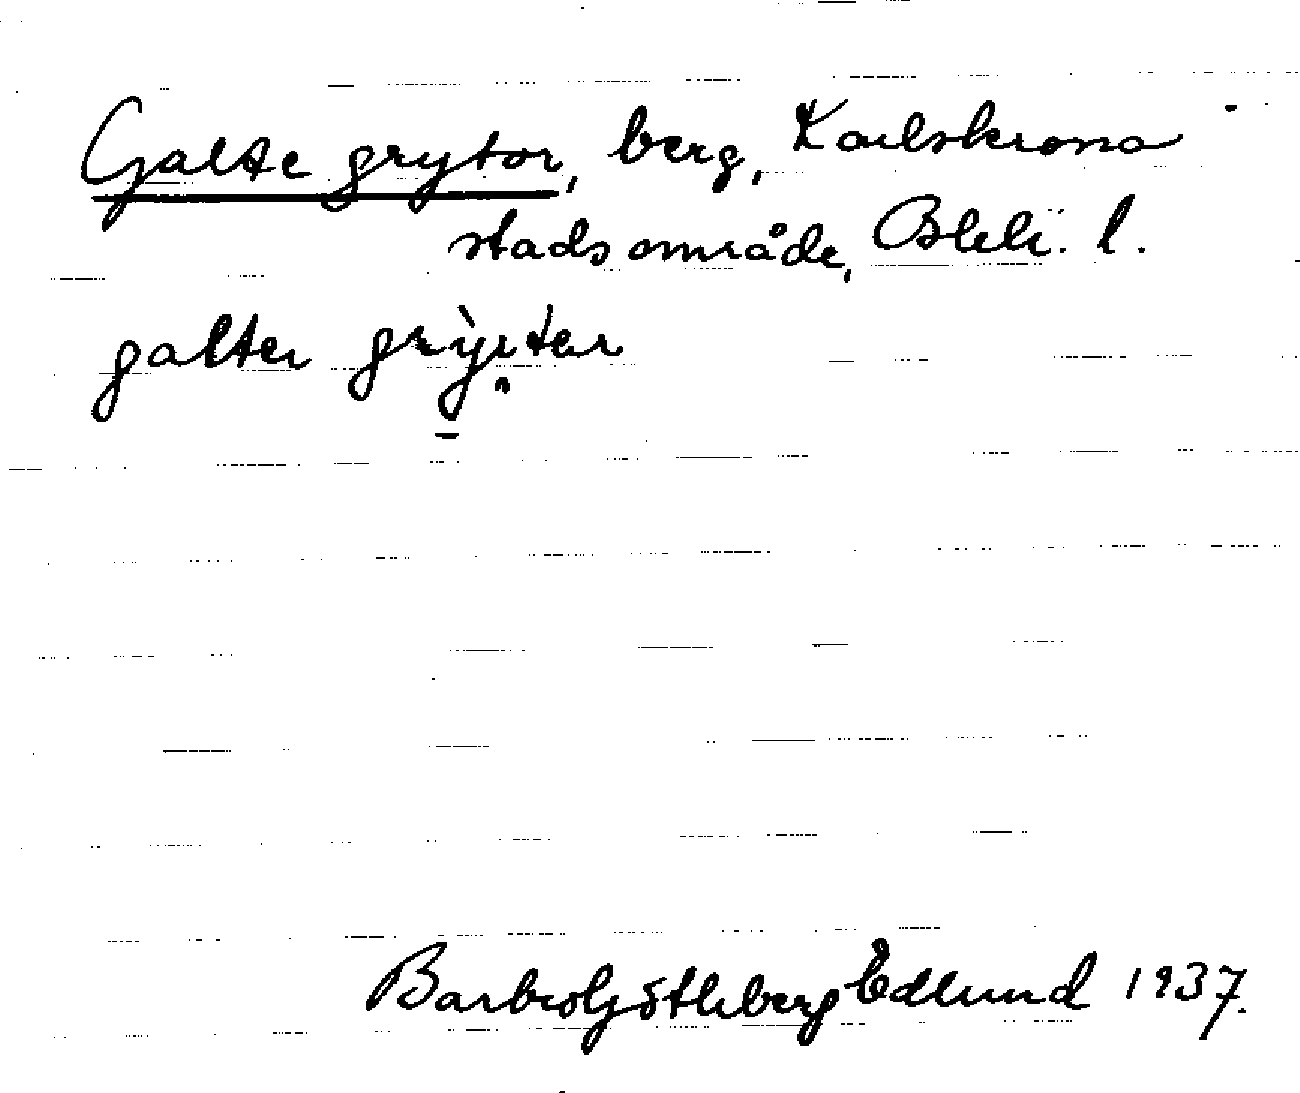 Galte grytor, berg, Karlskrona
stadsområde, Blek. l.
galter grỳter
Barbro Götheberg Edlund 1937.